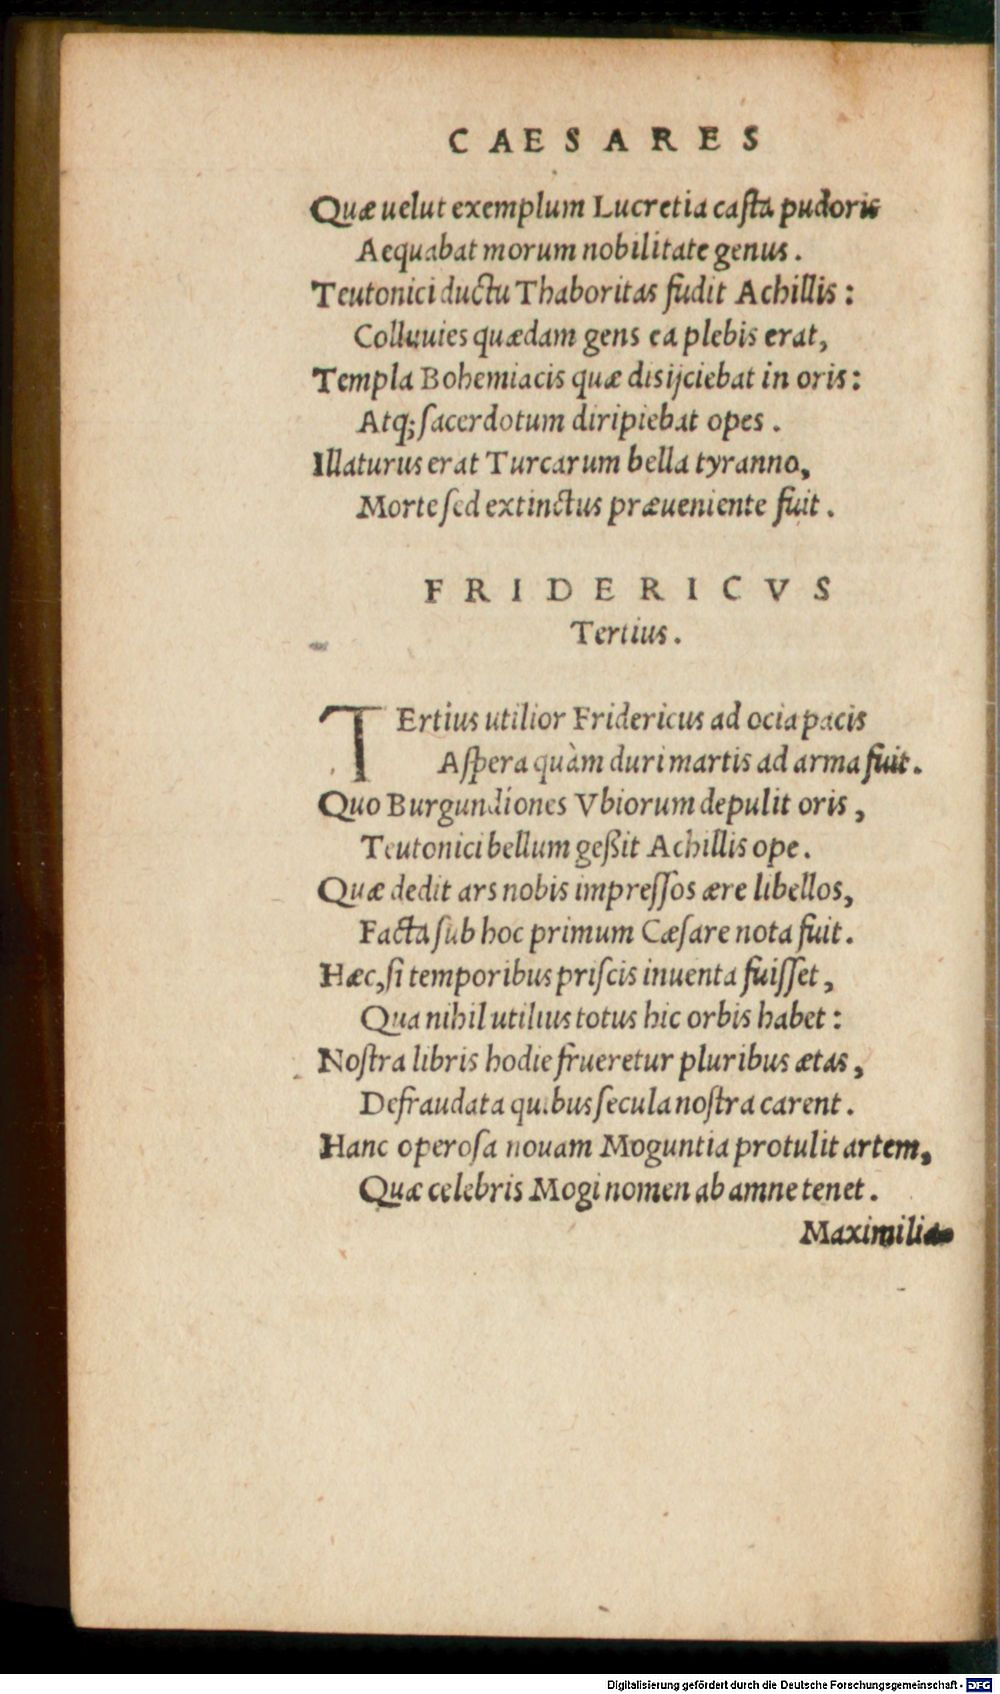 CAESARES
Quæ uelut exemplum Lucretia casta pudoris
Aequabat morum nobilitate genus.
Teutonici ductu Thaboritas fudit Achillis:
Colluuies quædam gens ea plebis erat,
Templa Bohemiacis quæ disijciebat in oris:
Atq; sacerdotum diripiebat opes.
Illaturus erat Turcarum bella tyranno,
Morte sed extinctus præueniente fuit.
FRIDERICVS
Tertius.
TErtius utilior Fridericus ad ocia pacis
Aspera quàm duri martis ad arma fuit.
Quo Burgundiones Vbiorum depulit oris,
Teutonici bellum geßit Achillis ope.
Quæ dedit ars nobis impressos ære libellos,
Facta sub hoc primum Cæsare nota fuit.
Hæc, si temporibus priscis inuenta fuisset,
Qua nihil utilius totus hic orbis habet:
Nostra libris hodie frueretur pluribus ætas,
Defraudata quibus secula nostra carent.
Hanc operosa nouam Moguntia protulit artem,
Quæ celebris Mogi nomen ab amne tenet.
Maximilia
Digitalisierung gefördert durch die Deutsche Forschungsgemeinschaft - DFG